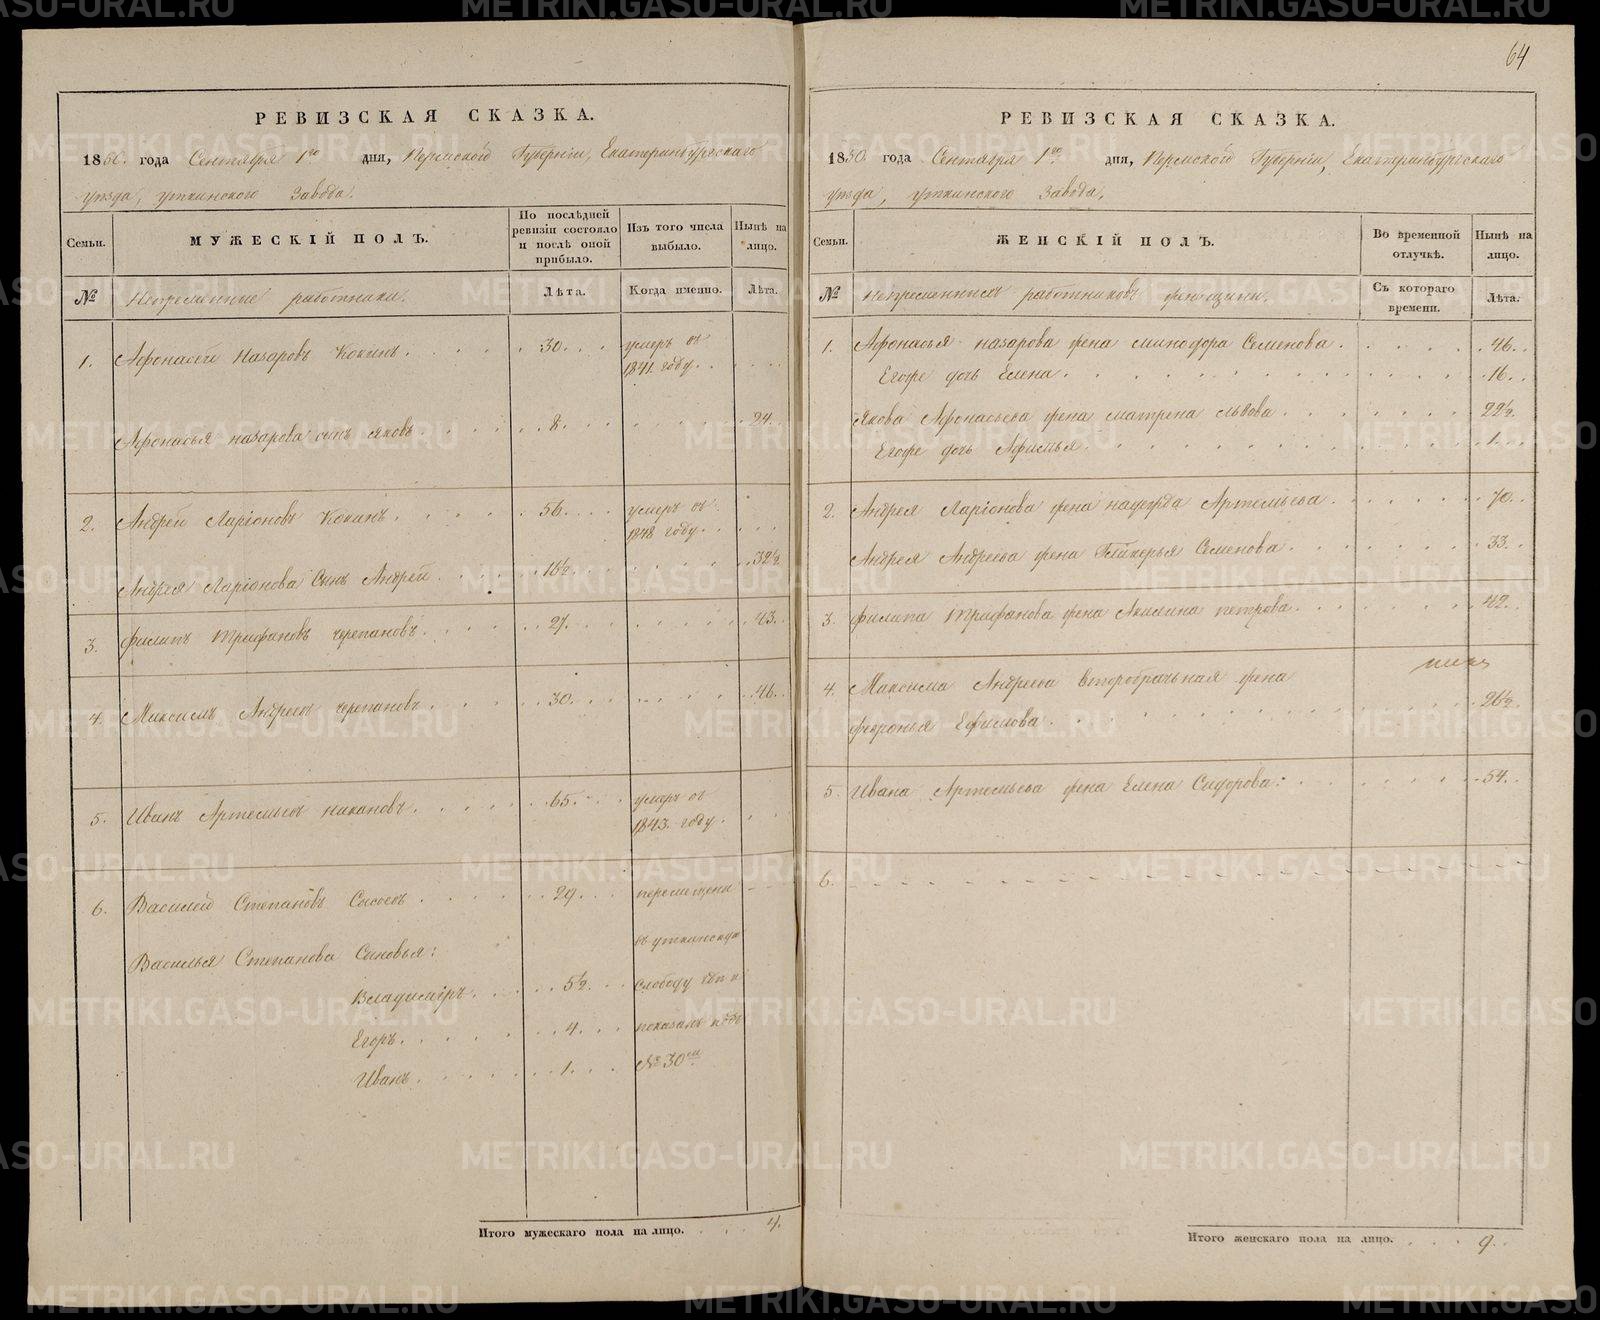 64
РЕВИЗСКАЯ СКАЗКА.
1850. года Сентября 1го дня, Пермской Губерніи, Екатеринбургскаго
уѣзда, уткинскаго Завода.
Семьи.
МУЖЕСКІЙ ПОЛЪ.
По послѣдней ревизіи состояло и послѣ оной прибыло.
Изъ того числа выбыло.
Нынѣ на лицо.
№
Непременные работники.
Лѣта.
Когда именно.
Лѣта.
1. Афонасей Назаровъ Кокинъ 30. умеръ въ
1841. году.
Афонасья назарова сынъ яковъ 8. 24.
2. Андрей Ларіоновъ Кокинъ 56. умеръ въ
1848 году.
Андрея Ларіонова Сынъ Андрей 16½ 32½
3. филипъ Трифановъ черепановъ 27. 43.
4. Максимъ Андреевъ черепановъ 30. 46.
5. Иванъ Артемьевъ 65. умеръ въ
1843. году.
6. Василей Степановъ Сысоевъ 29. перемищены
Василья Степанова Сыновья: въ уткинскую
Владимиръ. 5½ слободу
Егоръ. 4. показаны подъ
Иванъ. 1. №30мъ
Итого мужескаго пола на лицо. 4.
РЕВИЗСКАЯ СКАЗКА.
1850. года Сентября 1го дня, Пермской Губерніи, Екатеринбургскаго
уѣзда, уткинскаго Завода,
Семьи.
ЖЕНСКІЙ ПОЛЪ.
Во временной отлучкѣ.
Нынѣ на лицо.
№
Непременныхъ работниковъ женщины.
Съ котораго времени.
Лѣта.
1. Афонасья назарова жена минодора Семенова 46.
Егоже дочь Елена 16.
Якова Афонасьева жена матрена львова 22½
Егоже дочь Афимья 1.
2. Андрея Ларіонова жена надежда Артемьева 70.
Андрея Андреева жена Гликерья Семенова 33.
3. филипа Трифанова жена Акилина петрова 42.
4. Максима Андреева второбрачьная жена
февронья Ефимова 26½
5. Ивана Артемьева жена Елена Сидорова: 54.
6.
Итого женскаго пола на лицо. 9.
METRIKI.GASO-URAL.RU